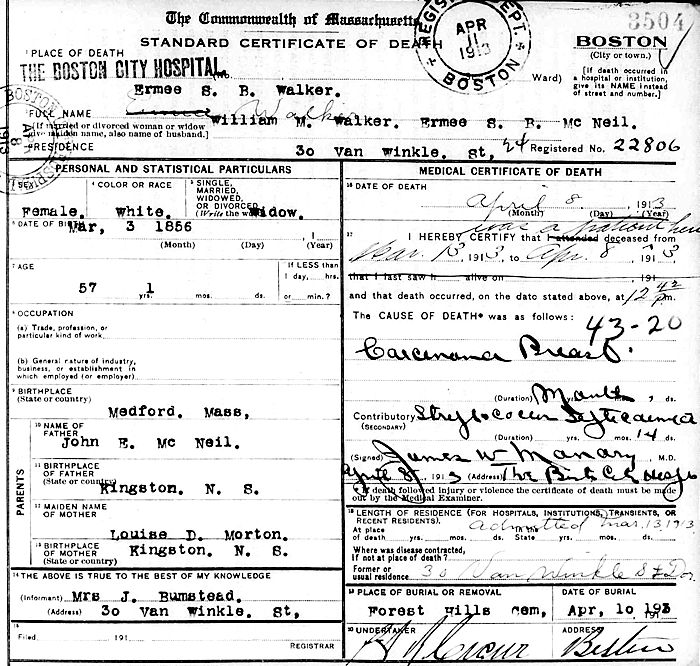 The Commonwealth of Massachusetts
3504
STANDARD CERTIFICATE OF DEATH
REGISTRY DEPT. BOSTON
APR 11 1913
BOSTON
(City or town.)
1 PLACE OF DEATH
THE BOSTON CITY HOSPITAL
Ward)
[If death occurred in a hospital or institution, give its NAME instead of street and number.]
Ermee S. B. Walker.
2 FULL NAME
Walker
[If married or divorced woman or widow give maiden name, also name of husband.]
William M. Walker. Ermee S. B. Mc Neil.
RESIDENCE
30 Van Winkle. St, 24
Registered No. 22806
PERSONAL AND STATISTICAL PARTICULARS
3 SEX
Female.
4 COLOR OR RACE
White.
5 SINGLE, MARRIED, WIDOWED, OR DIVORCED
(Write the word)
Widow.
6 DATE OF BIRTH
Mar, 3 1856
(Month) (Day) (Year)
7 AGE
57 yrs. 1 mos. ds.
If LESS than 1 day, hrs. or min.?
8 OCCUPATION
(a) Trade, profession, or particular kind of work
(b) General nature of industry, business, or establishment in which employed (or employer)
9 BIRTHPLACE
(State or country)
Medford. Mass,
PARENTS
10 NAME OF FATHER
John E. Mc Neil.
11 BIRTHPLACE OF FATHER
(State or country)
Kingston. N. S.
12 MAIDEN NAME OF MOTHER
Louise D. Morton.
13 BIRTHPLACE OF MOTHER
(State or country)
Kingston. N. S.
14 THE ABOVE IS TRUE TO THE BEST OF MY KNOWLEDGE
(Informant) Mrs J. Bumstead.
(Address) 30 Van Winkle. St,
15
Filed, 191
REGISTRAR
MEDICAL CERTIFICATE OF DEATH
16 DATE OF DEATH
April 8, 1913
(Month) (Day) (Year)
was a patient here
17 I HEREBY CERTIFY that I attended deceased from
Mar. 13, 1913, to Apr. 8, 1913
that I last saw h alive on 191
and that death occurred, on the date stated above, at 12 42 p.m.
The CAUSE OF DEATH* was as follows:
43-20
Carcinoma Breast.
(Duration) yrs. mos. ds.
Contributory Streptococcus Septicaemia
(SECONDARY)
(Duration) yrs. mos. 14 ds.
(Signed) James W Manary, M.D.
April 8, 1913 (Address) The Bost City Hosp
* If death followed injury or violence the certificate of death must be made out by the Medical Examiner.
18 LENGTH OF RESIDENCE (FOR HOSPITALS, INSTITUTIONS, TRANSIENTS, OR RECENT RESIDENTS).
admitted Mar. 13, 1913
At place of death yrs. mos. ds. State yrs. mos. ds.
Where was disease contracted, If not at place of death?
Former or usual residence 30 Van Winkle St Dor
19 PLACE OF BURIAL OR REMOVAL
Forest Hills Cem,
DATE OF BURIAL
Apr, 10 1913
20 UNDERTAKER
ADDRESS
Boston